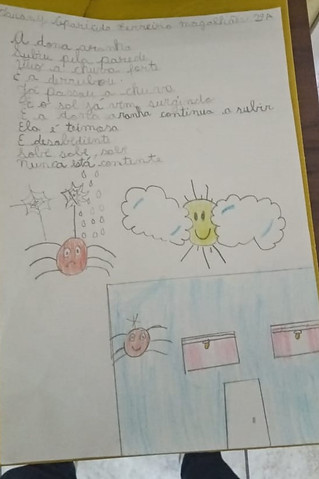 Aparecido Ferreira Magalhães 2ºA
A dona aranha
Subiu pela parede
Veio a chuva forte
E a derrubou
Já passou a chuva
E o sol já vem surgindo
E a dona aranha continua a subir
Ela é teimosa
E desobediente
Sobe sobe, sobe
Nunca está contente